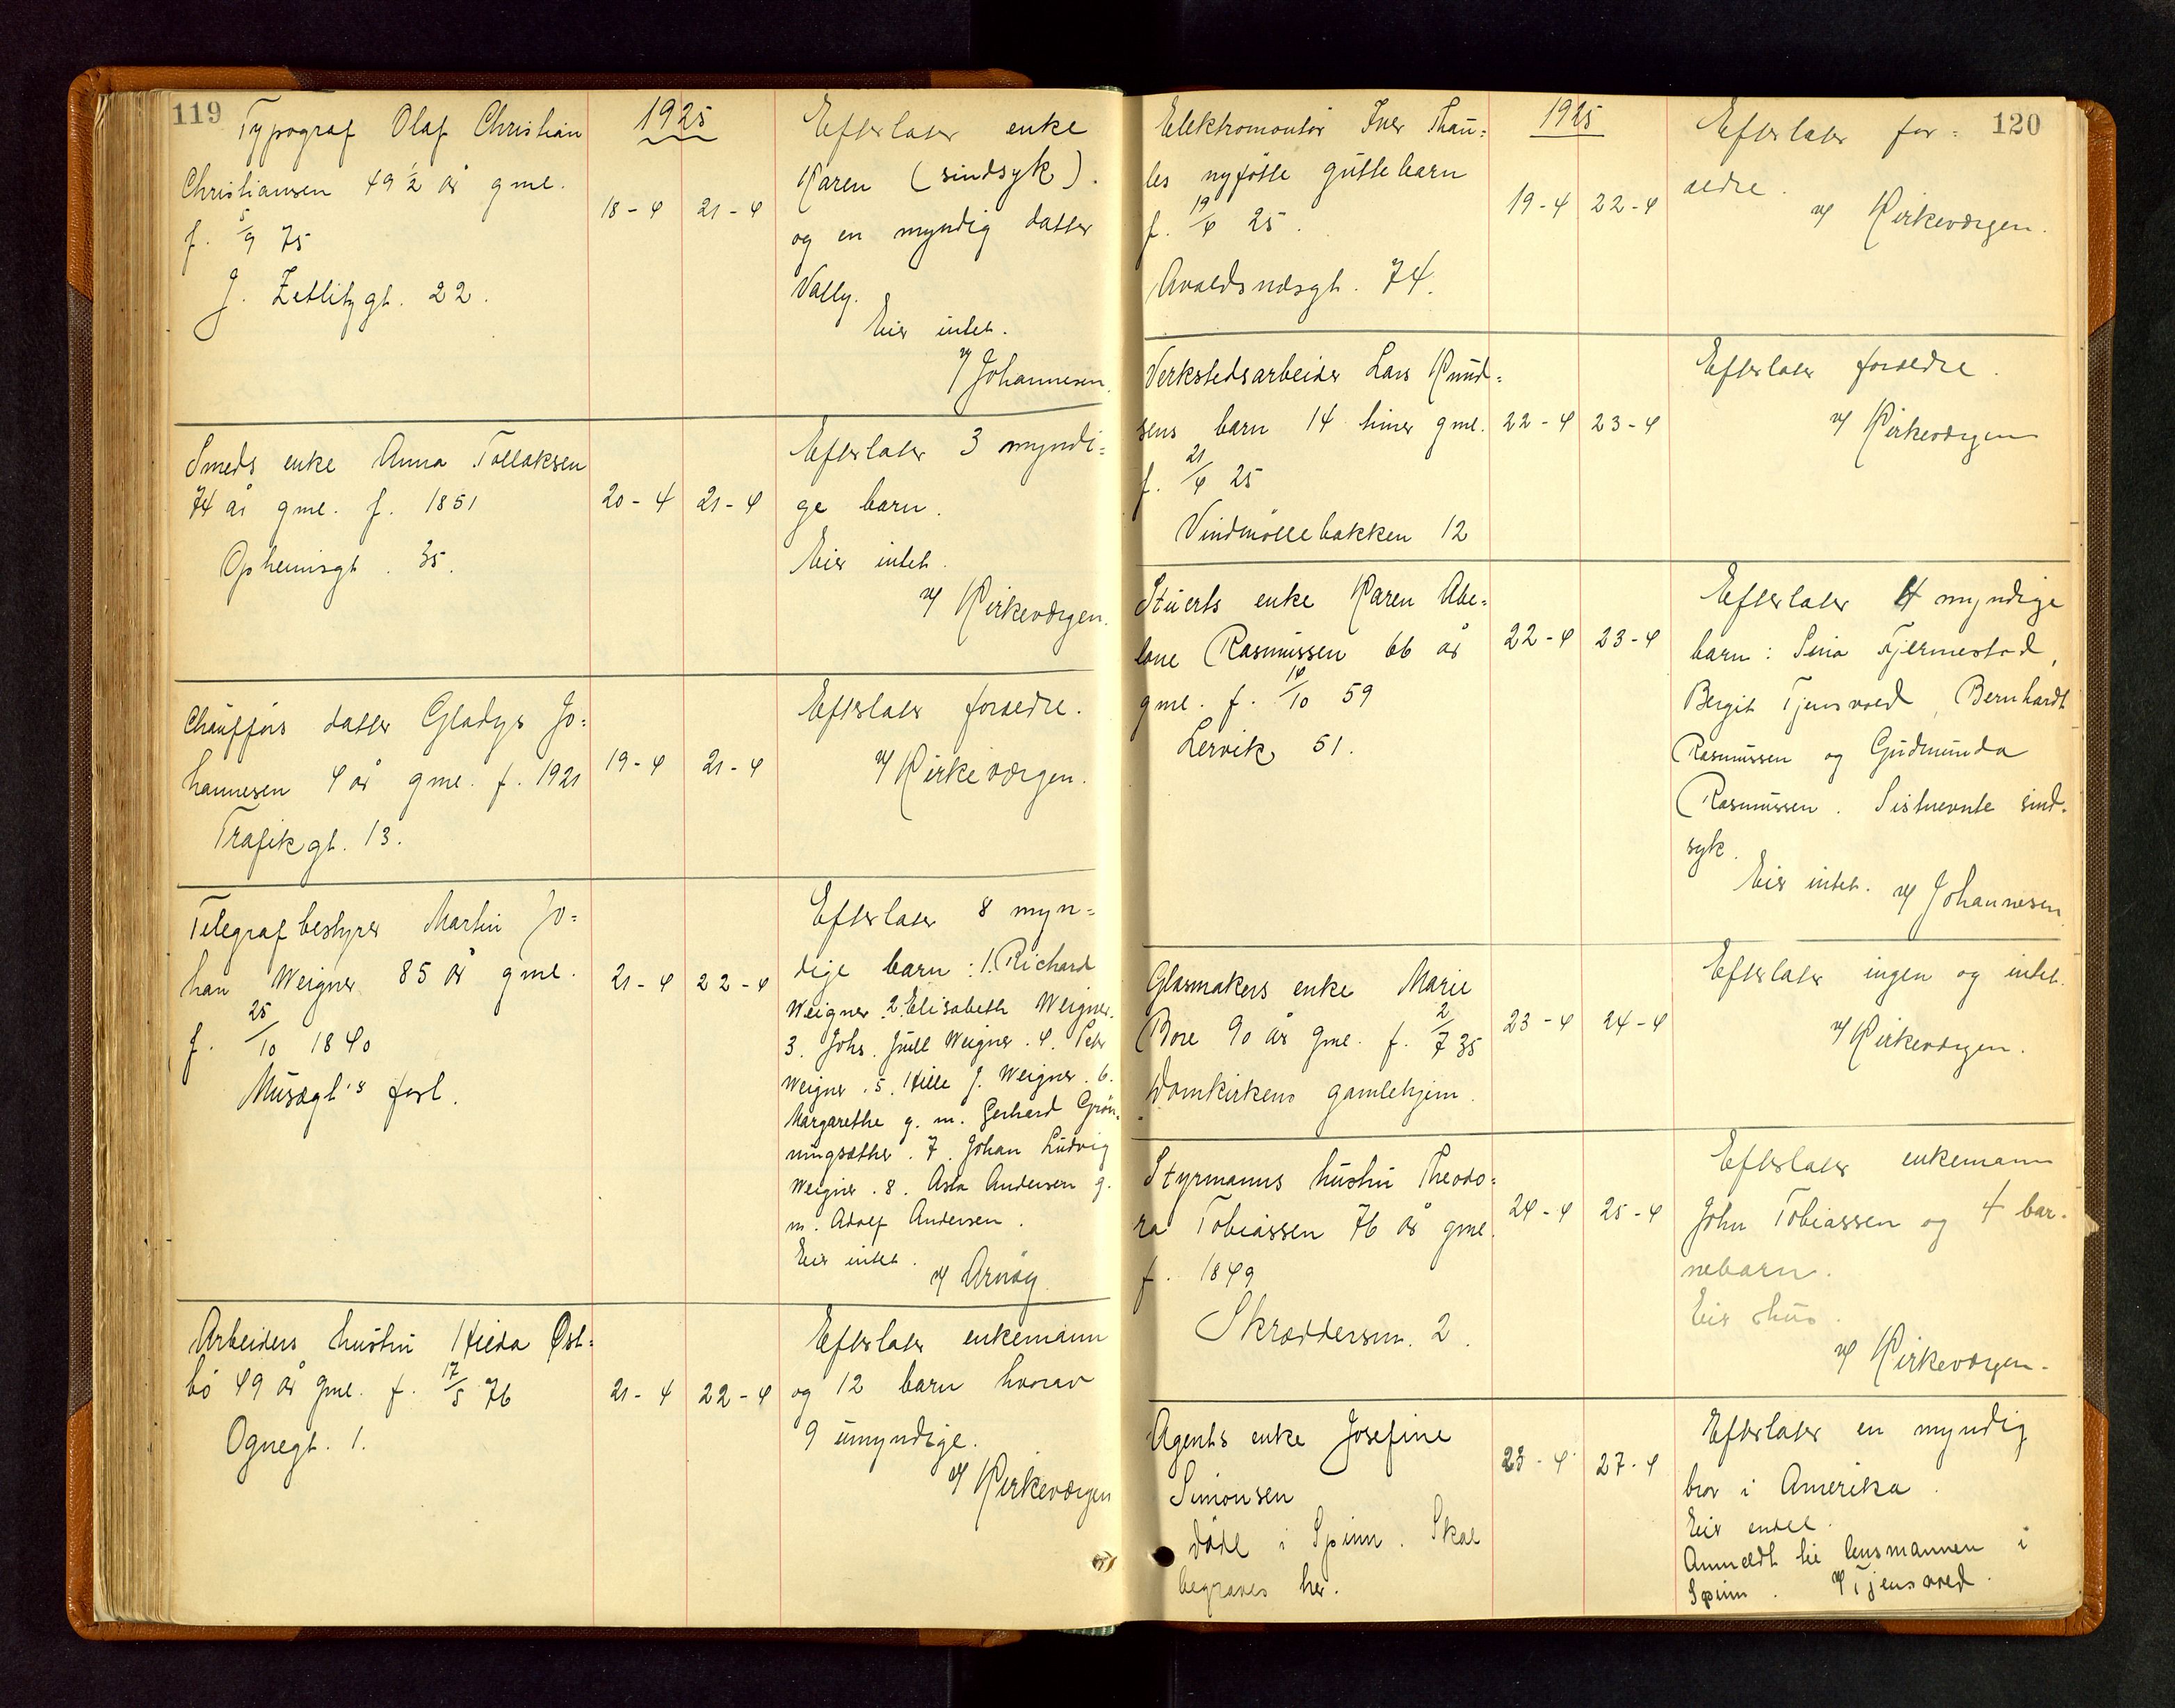 119
1925
Typograf Olaf Christian
Christiansen 49 ½ år gml.
f. 5/9 75
J. Zetlitzgt. 22.
18-4 21-4
Efterlater enke
Karen (sindsyk).
og en myndig datter
Vally.
Eier intet.
v/ Johannesen.
Smeds enke Anna Tollaksen
74 år gml. f. 1851
Opheimsgt. 35.
20-4 21-4
Efterlater 3 myndi=
ge barn.
Eier intet.
v/ Kirkevergen.
Chaufførs datter Gladys Jo=
hannesen 4 år gml. f. 1921
Trafikgt. 13.
19-4 21-4
Efterlater forældre.
v/ Kirkevergen.
Telegrafbestyrer Martin Jo=
han Weigner 85 år gml.
f. 25/10 1840
Muségt's forl.
21-4 22-4
Efterlater 8 myn=
dige barn: 1. Richard
Weigner. 2. Elisabeth Weigner.
3. Johs. Juell Weigner. 4. Peter
Weigner. 5. Hille J. Weigner. 6.
Margarethe g. m. Gerhard Grøn=
ningsæther. 7. Johan Ludvig
Weigner. 8. Asta Andersen g.
m. Adolf Andersen.
Eier intet.
v/ Arnøy.
Arbeiders hustru Hilda Øst=
bø 49 år gml. f. 17/5 76
Ognegt. 1.
21-4 22-4
Efterlater enkemann
og 12 barn hvorav
9 umyndige.
v/ Kirkevergen
120
1925
Elektromontør Iver Thau=
les nyfødte guttebarn
f. 19/4 25.
Avaldsnesgt. 74.
19-4 22-4
Efterlater for=
ældre.
v/ Kirkevergen.
Verkstedsarbeider Lars Knud=
sens barn 14 timer gml.
f. 21/4 25
Vindmøllebakken 12
22-4 23-4
Efterlater forældre.
v/ Kirkevergen
Stuerts enke Karen Abe=
lone Rasmussen 66 år
gml. f. 14/10 59
Lervik 51.
22-4 23-4
Efterlater 4 myndige
barn: Sina Tjermestad,
Bergit Tjensvold, Bernhardt
Rasmussen og Gudmunda
Rasmussen. Sistnevnte sind=
syk.
Eier intet. v/ Johannesen
Glasmakers enke Marie
Bore 90 år gml. f. 2/7 35
Domkirkens gamlehjem.
23-4 24-4
Efterlater ingen og intet.
v/ Kirkevergen.
Styrmanns hustru Theodo=
ra Tobiassen 76 år gml.
f. 1849
Skræddersm. 2.
24-4 25-4
Efterlater enkemann
John Tobiassen og 4 bar=
nebarn.
Eier hus.
v/ Kirkevergen.
Agents enke Josefine
Simonsen
død i Spinn. Skal
begraves her.
23-4 27-4
Efterlater en myndig
bror i Amerika.
Eier endel.
Anmeldt til lensmannen i
Spinn. v/ Tjensvold.